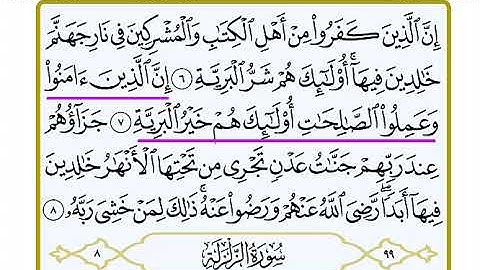 إِنَّ ٱلَّذِينَ كَفَرُوا۟ مِنْ أَهْلِ ٱلْكِتَٰبِ وَٱلْمُشْرِكِينَ فِى نَارِ جَهَنَّمَ
خَٰلِدِينَ فِيهَآ ۚ أُو۟لَٰٓئِكَ هُمْ شَرُّ ٱلْبَرِيَّةِ ٦ إِنَّ ٱلَّذِينَ ءَامَنُوا۟
وَعَمِلُوا۟ ٱلصَّٰلِحَٰتِ أُو۟لَٰٓئِكَ هُمْ خَيْرُ ٱلْبَرِيَّةِ ٧ جَزَآؤُهُمْ
عِندَ رَبِّهِمْ جَنَّٰتُ عَدْنٍ تَجْرِى مِن تَحْتِهَا ٱلْأَنْهَٰرُ خَٰلِدِينَ
فِيهَآ أَبَدًا ۖ رَّضِىَ ٱللَّهُ عَنْهُمْ وَرَضُوا۟ عَنْهُ ۚ ذَٰلِكَ لِمَنْ خَشِىَ رَبَّهُۥ ٨
٩٩ سُورَةُ الزَّلْزَلَةِ ٨